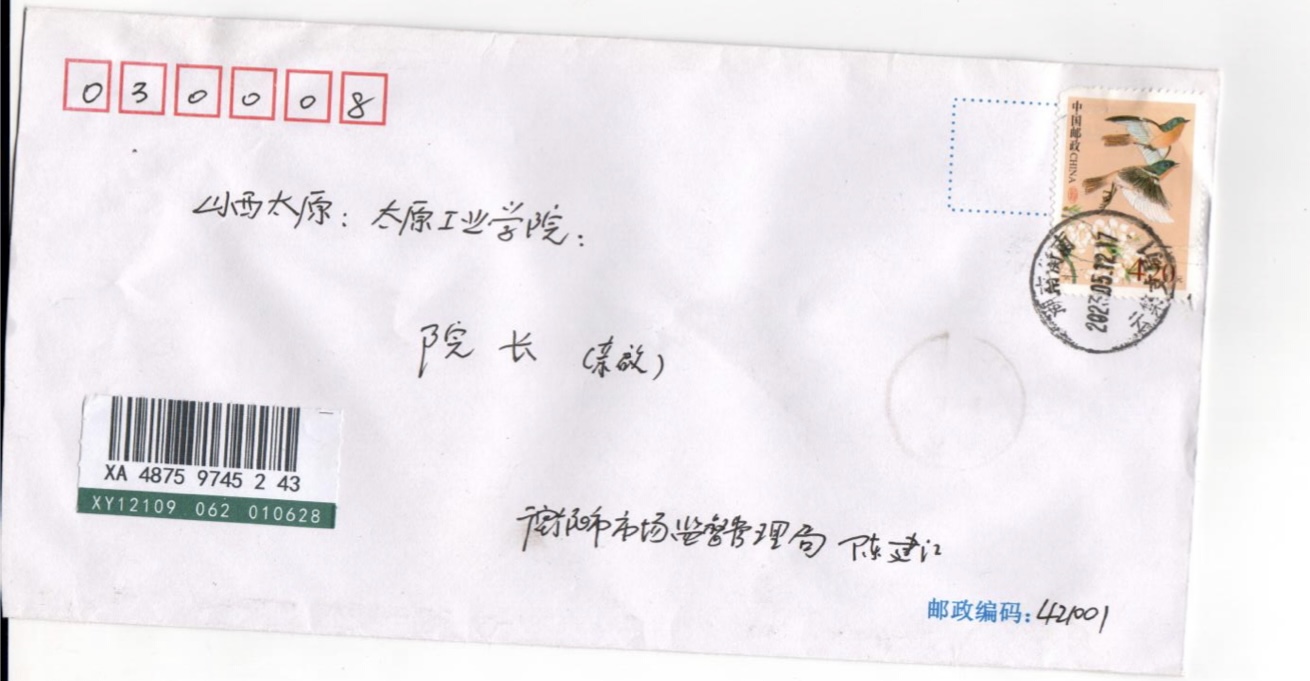 030008
中国邮政 CHINA
山西太原：太原工业学院：
院长（亲启）
湖南衡阳
2023.05.12.17
XA 4875 9745 2 43
XY12109 062 010628
衡阳市市场监督管理局 陈建江
邮政编码：421001